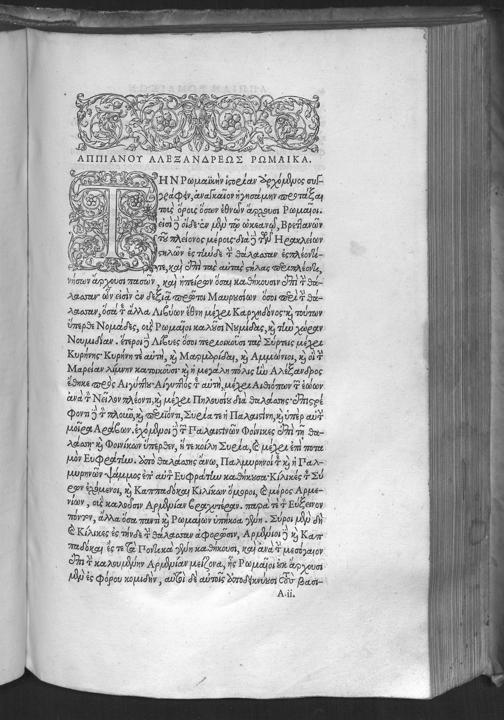 ΑΠΠΙΑΝΟΥ ΑΛΕΞΑΝΔΡΕΩΣ ΡΩΜΑΙΚΑ.
ΤΗΝ Ρωμαϊκὴν ἱστορίαν ἀρχόμενος συγ-
γράφειν, ἀναγκαῖον ἡγησάμην προτάξαι
τοὺς ὅρους ὅσων ἐθνῶν ἄρχουσι Ρωμαῖοι.
εἰσὶ δὲ οἵδε· ἐν μὲν τῷ ὠκεανῷ, Βρεττανῶν
τοῦ πλείονος μέρους· διὰ δὲ τῶν Ηρακλείων
στηλῶν ἐς τήνδε τὴν θάλασσαν ἐσπλέοντι
τε, καὶ ἐπὶ τὰς αὐτὰς στήλας περιπλέοντι,
νήσων ἄρχουσι πασῶν, καὶ ἠπείρων ὅσαι καθήκουσιν ἐπὶ τὴν θά-
λασσαν· ὧν εἰσὶν ἐν δεξιᾷ πρῶτοι Μαυρουσίων ὅσοι περὶ τὴν θά-
λασσαν, ὅσα τε ἄλλα Λιβύων ἔθνη μέχρι Καρχηδόνος· καὶ τούτων
ὕπερθε Νομάδες, οὓς Ρωμαῖοι καλοῦσι Νουμίδας, καὶ τὴν χώραν
Νουμιδίαν. ἕτεροι δὲ Λίβυες ὅσοι περιοικοῦσι τὰς Σύρτεις μέχρι
Κυρήνης· Κυρήνη τε αὐτὴ, καὶ Μαρμαρίδαι, καὶ Αμμώνιοι, καὶ οἳ τὴν
Μαρείαν λίμνην κατοικοῦσι· καὶ ἡ μεγάλη πόλις ἣν Αλέξανδρος
ἔθηκε πρὸς Αἰγύπτου· Αἴγυπτός τε αὐτὴ, μέχρι Αἰθιόπων τῶν ἑῴων
ἀνὰ τὸν Νεῖλον πλέοντι, καὶ μέχρι Πηλουσίου διὰ θαλάσσης· ἐπιστρέ-
φοντι δὲ τὸν πλοῦν, καὶ περιιόντι, Συρία τε ἡ Παλαιστίνη, καὶ ὑπὲρ αὐτὴν
μοῖρα Αράβων. ἐχόμενοι δὲ τῶν Παλαιστινῶν Φοίνικες ἐπὶ τῇ θα-
λάσσῃ· καὶ Φοινίκων ὕπερθεν, ἥ τε κοίλη Συρία, καὶ μέχρι ἐπὶ ποτα-
μὸν Εὐφράτην. ἀπὸ θαλάσσης ἄνω, Παλμυρηνοί τε καὶ ἡ Παλ-
μυρηνῶν ψάμμος ἐπ' αὐτὸν Εὐφράτην καθήκουσα· Κίλικές τε Σύ-
ρων ἐχόμενοι, καὶ Καππαδόκαι Κιλίκων ὅμοροι, καὶ μέρος Αρμε-
νίων, οὓς καλοῦσιν Αρμενίαν βραχυτέραν. παρά τε τὸν Εὔξεινον
πόντον, ἄλλα ὅσα ποντικὰ Ρωμαίων ὑπήκοα γένη. Σύροι μὲν δὴ
καὶ Κίλικες ἐς τήνδε τὴν θάλασσαν ἀφορῶσιν, Αρμένιοι δὲ καὶ Καπ-
παδόκαι ἔς τε τὰ Ποντικὰ γένη καθήκουσι, καὶ ἀνὰ τὸ μεσόγαιον
ἐπὶ τὴν καλουμένην Αρμενίαν μείζονα, ἧς Ρωμαῖοι οὐκ ἄρχουσι
μὲν ἐς φόρου κομιδὴν, αὐτοὶ δὲ αὐτοῖς ἀποδεικνύουσι τοὺς βασι-
A.ii.